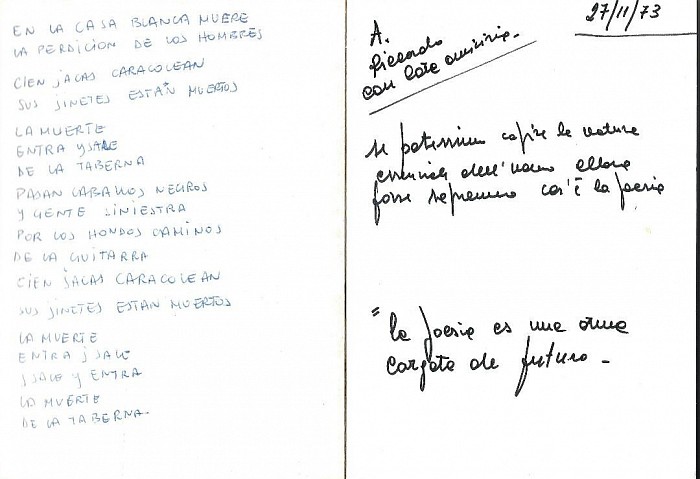 EN LA CASA BLANCA MUERE
LA PERDICION DE LOS HOMBRES
CIEN JACAS CARACOLEAN
SUS JINETES ESTAN MUERTOS
LA MUERTE
ENTRA Y SALE
DE LA TABERNA
PASAN CABALLOS NEGROS
Y GENTE SINIESTRA
POR LOS HONDOS CAMINOS
DE LA GUITARRA
CIEN JACAS CARACOLEAN
SUS JINETES ESTAN MUERTOS
LA MUERTE
ENTRA Y SALE
Y SALE Y ENTRA
LA MUERTE
DE LA TABERNA.
27/11/73
A.
Riccardo
con
se potessimo capire la natura
dell'uomo allora
forse sapremmo cos'è la poesia
"la poesia es une arma
cargata de futuro -